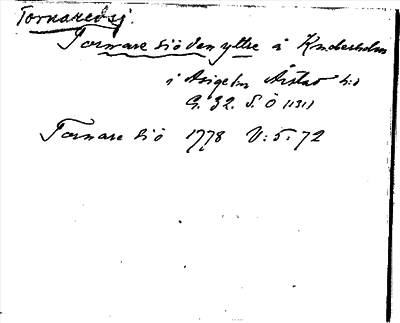 Tornaredsj.
Tornare siöden yttre å Knaberholm
i Asige sn Årstad h:d
G. 32. S. Ö (131)
Tornare siö 1778 V: 5: 72